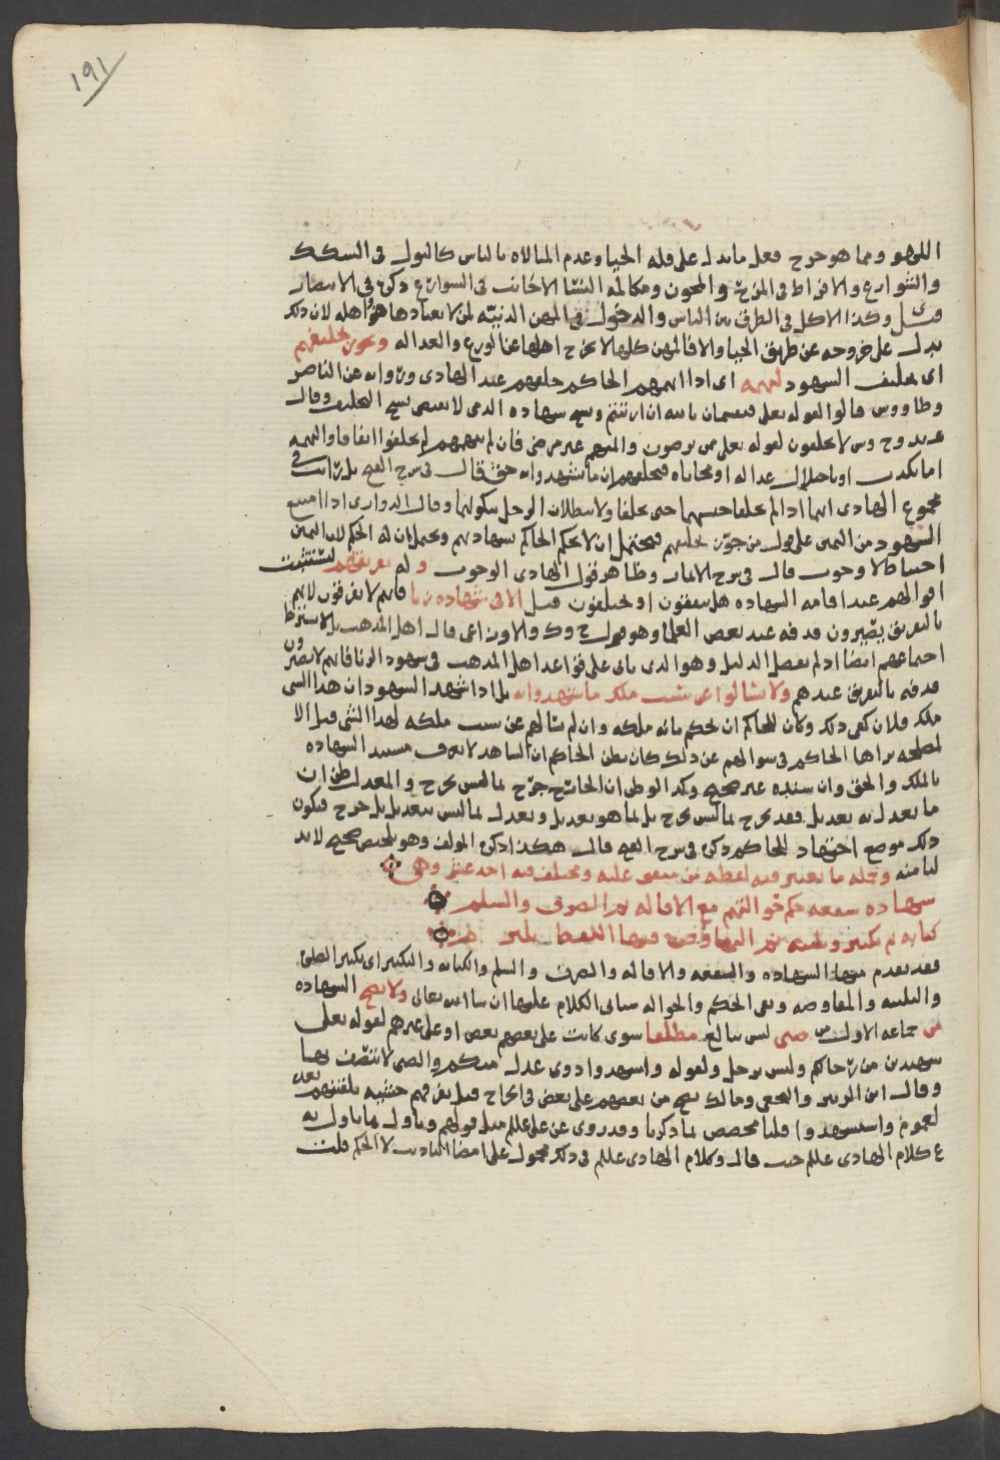 ١٩١
اللهو ومما هو جرح فعل ما يدل على قله الحيا وعدم المبالاه بالناس كالبول فى السكك
والشوارع والافراط فى المزح والمجون ومكالمه النسا الاجانب فى الشوارع ذكره فى الانتصار
قيل وكذا الاكل فى الطرق بين الناس والدخول فى المهن الدنيه لمن لا يعتادها هو واهله لان ذلك
يدل على خروجه عن طريق الحيا والا فالمهن كلها لا تخرج اهلها عن الورع والعداله ويجوز تحليفهم
اى تحليف الشهود لتهمه اى اذا اتهمهم الحاكم حلفهم عند الهادى وروايه عن الناصر
وطاووس قالوا لقوله تعلى فيقسمان بالله ان ارتبتم ونسخ شهاده الذمى لا يقتضى نسخ التحليف وقال
وح وش لا يحلفون لقوله تعلى ممن ترضون والمتهم غير مرضى فان لم يتهمهم لم يحلفوا اتفاقا والتهمه
اما بكذب او باختلال عداله او محاباه فيحلفهم ان ما شهدوا به حق قال فى شرح الفتح بل رايت فى
مجموع الهادى انهما اذا لم يحلفا حبسهما حتى يحلفا ولا يبطلان الرجل بنكولهما وقال الدوارى اذا امتنع
الشهود من اليمين على قول من جوز تحليفهم فيحتمل ان لا يحكم الحاكم بشهادتهم ويحتمل ان له الحكم لان اليمين
احتياط لا وجوب قال فى شرح الاثمار وظاهر قول الهادى الوجوب و له تفريقهم ليستثبت
اقوالهم عند اقامه الشهاده هل يتفقون او يختلفون قيل الا فى شهاده زنا فانهم لا يفرقون لانهم
بالتفريق يصيرون قذفه عند بعض العلما وهو قول ح وك والاوزاعى قال اهل المذهب بل لا يشترط
اجتماعهم ايضا اذ لم يفصل الدليل وهو الذى ياتى على قواعد اهل المذهب فى شهود الزنا فانهم لا يصيرون
قذفه بالتفريق عندهم ولا يسالوا عن سبب ملك ما شهدوا به بل اذا شهد الشهود ان هذا الشى
ملك فلان كفى ذلك وكان للحاكم ان يحكم بانه ملكه وان لم يسالهم عن سبب ملكه لهذا الشى قيل الا
لمصلحه يراها الحاكم فى سوالهم عن ذلك كان يظن الحاكم ان الشاهد لا يعرف مستند الشهاده
بالملك والحق وان سنده غير صحيح وكذا لو ظن ان الجارح جرح بما ليس بجرح والمعدل ظن ان
ما يعدل به تعديل فقد يجرح بما ليس بجرح بل بما هو تعديل ويعدل بما ليس بتعديل بل جرح فيكون
ذلك موضع اجتهاد للحاكم ذكره فى شرح الفتح قال هكذا ذكره المولف وهو تلخيص صحيح لا بد
لنا منه وجمله ما يعتبر فيه لفظه من متفق عليه ومختلف فيه احد عشر وهى
شهاده شفعه حكم حوالتهم مع الاقاله ثم الصرف والسلم
كتابه ثم تكبير وتلبيه ثم المفاوضه فيها اللفظ
فقد تقدم منها الشهاده والشفعه والاقاله والصرف والسلم والكتابه والتكبير اى تكبير الصلوه
والتلبيه والمفاوضه وبقى الحكم والحواله سياتى الكلام عليها ان شا الله تعالى ولا تصح الشهاده
من جماعه الاول من صبى ليس ببالغ مطلقا سوى كانت على بعضهم بعض او على غيرهم لقوله تعلى
شهيدين من رجالكم وليس برجل ولقوله واشهدوا ذوى عدل منكم والصبى لا يتصف بها
وقال ابن الزبير والنخعى ومالك تصح من بعضهم على بعض فى الجراح قبل تفرقهم خشيه تلقينهم
لعموم واستشهدوا قلنا مخصص بما ذكرنا وقد روى عن على علم مثل قولهم وتاول بما تاول به
ع كلام الهادى علم حيث قال وكلام الهادى علم فى ذلك محمول على امضا التاديب لا الحكم قلت